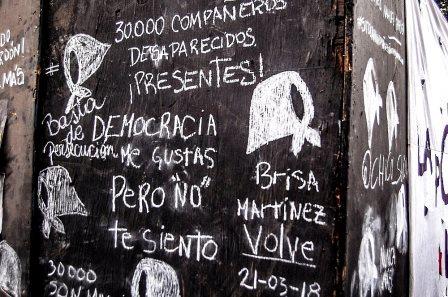 30.000 COMPAÑEROS
DESAPARECIDOS
¡PRESENTES!
Basta
de
persecución
DEMOCRACIA
ME GUSTAS
PERO "NO"
te SIENTO
BRISA
MARTÍNEZ
Volve
21-03-18
30000
SON
MAS